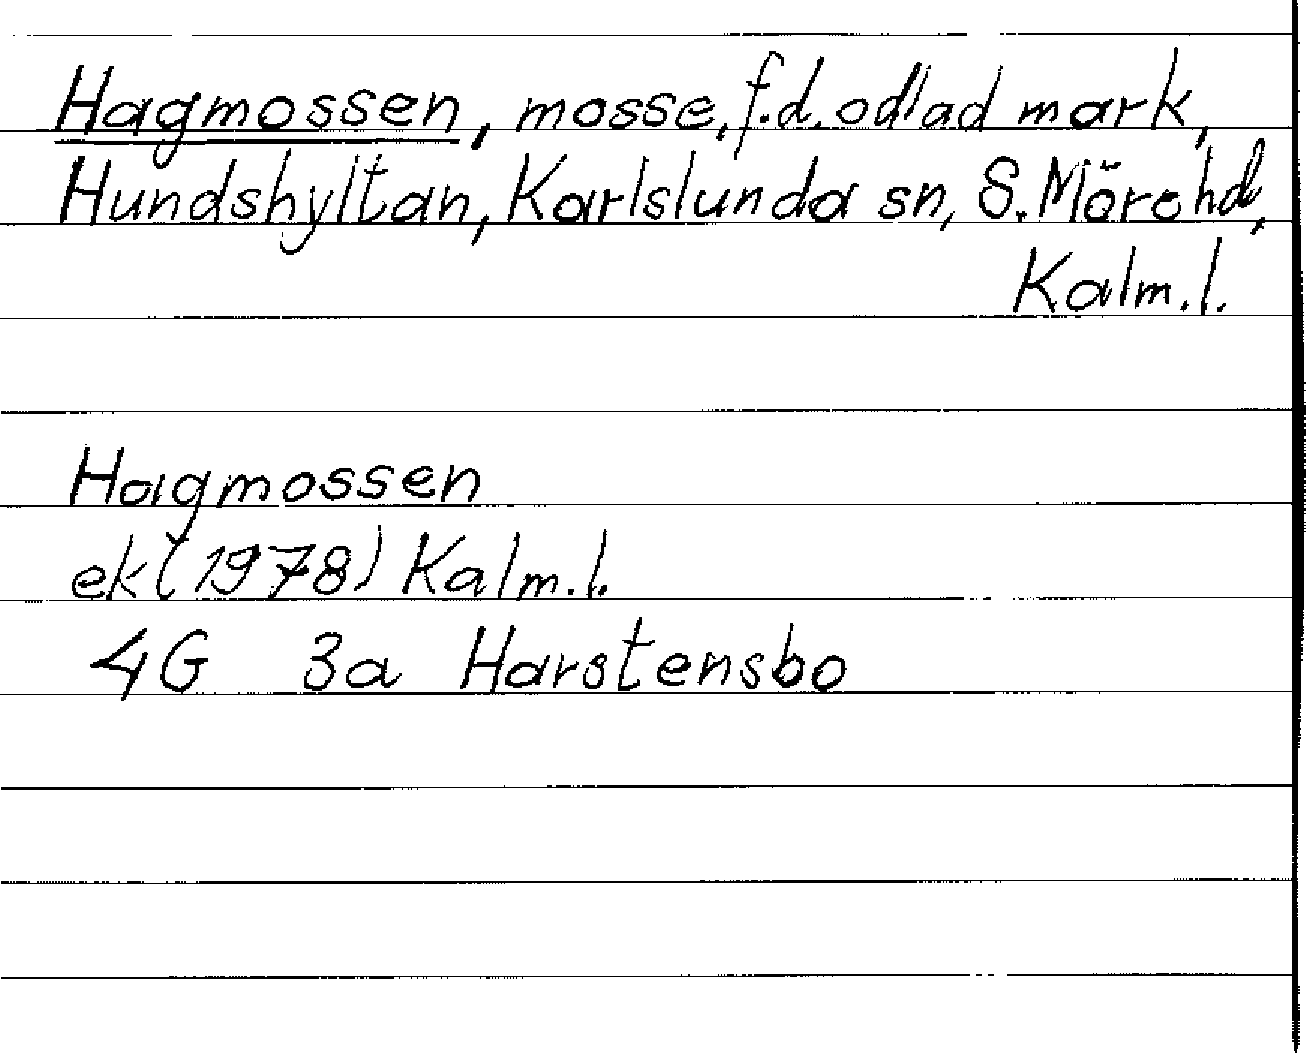 Hagmossen, mosse, f.d. odlad mark,
Hundshyltan, Karlslunda sn, S. Möre hd,
Kalm.l.
Hagmossen
ek (1978) Kalm.l.
4G 3a Harstensbo